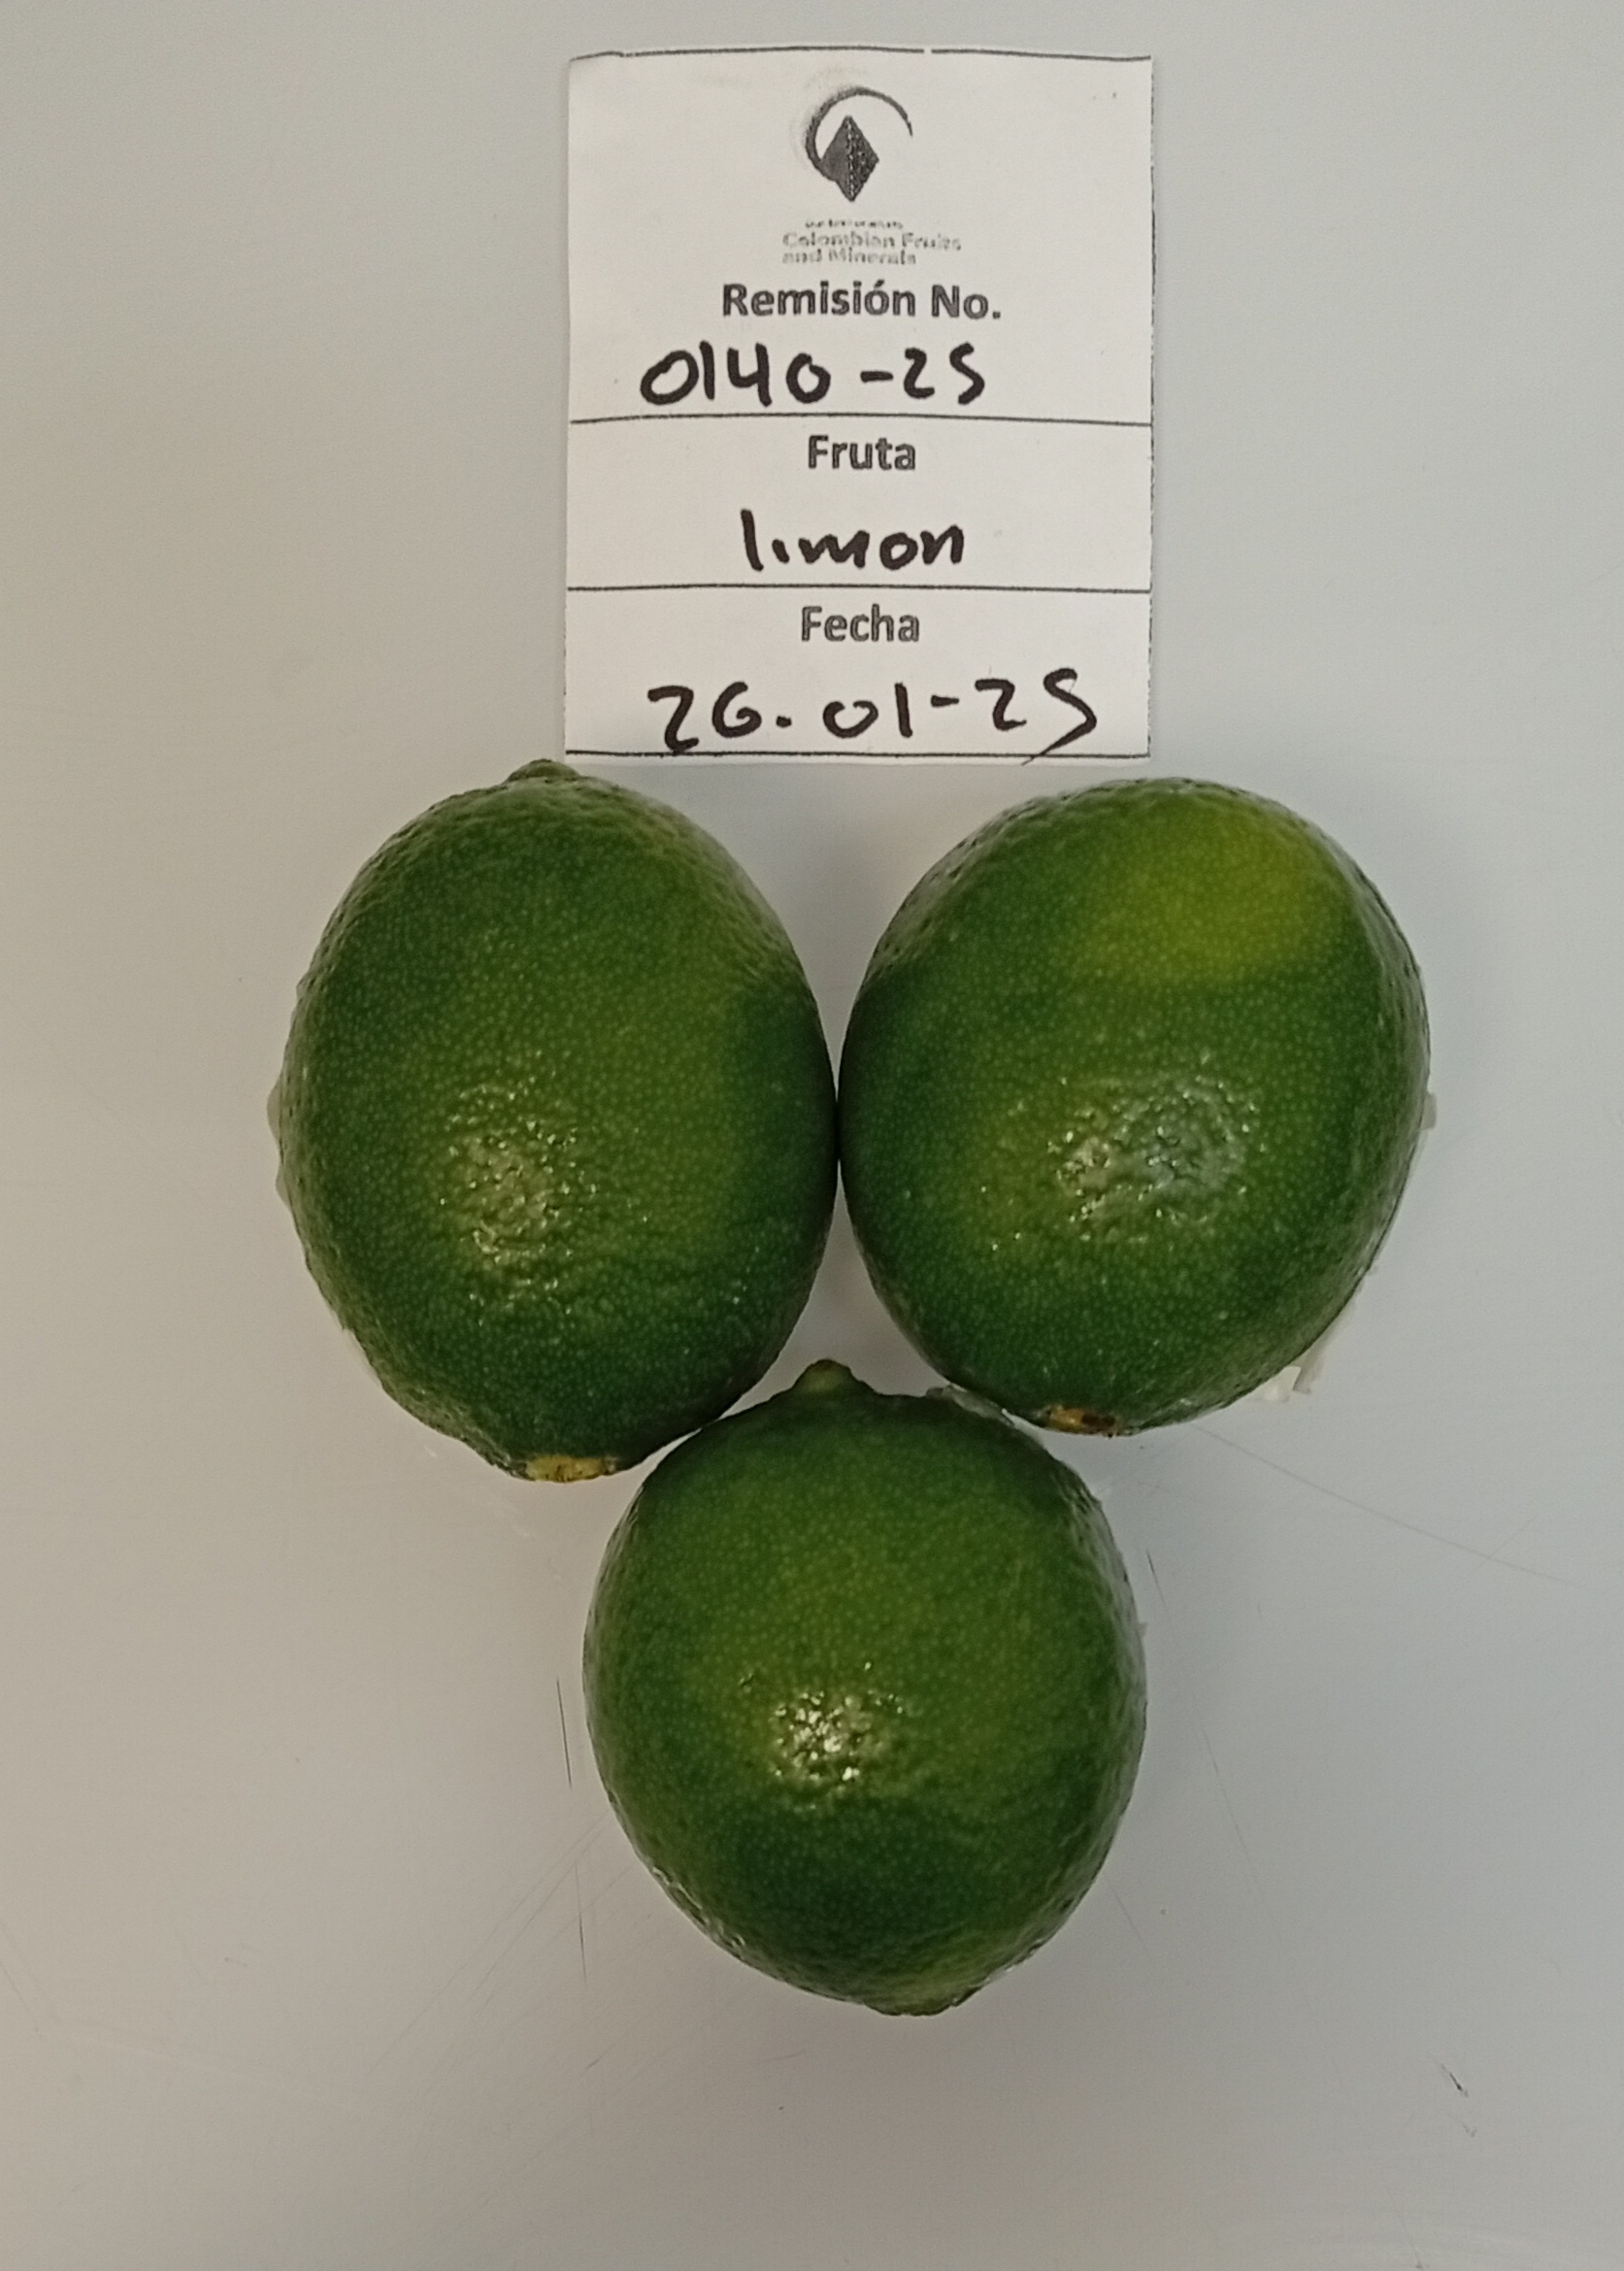 Colombian Fruits
and Minerals
Remisión No.
0140-25
Fruta
limon
Fecha
26.01-25